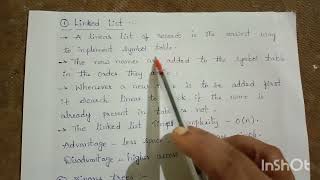 ① Linked List :-
→ A linear list of records is the easiest way
to implement symbol table.
→ The new names are added to the symbol table
in the order they
→ Whenever a new is to be added first
it search linear to check if the name is
already present in table or not.
→ The linked list time complexity - O(n).
Advantage - less space
Disadvantage = higher access
Binary Trees :-
InShOt